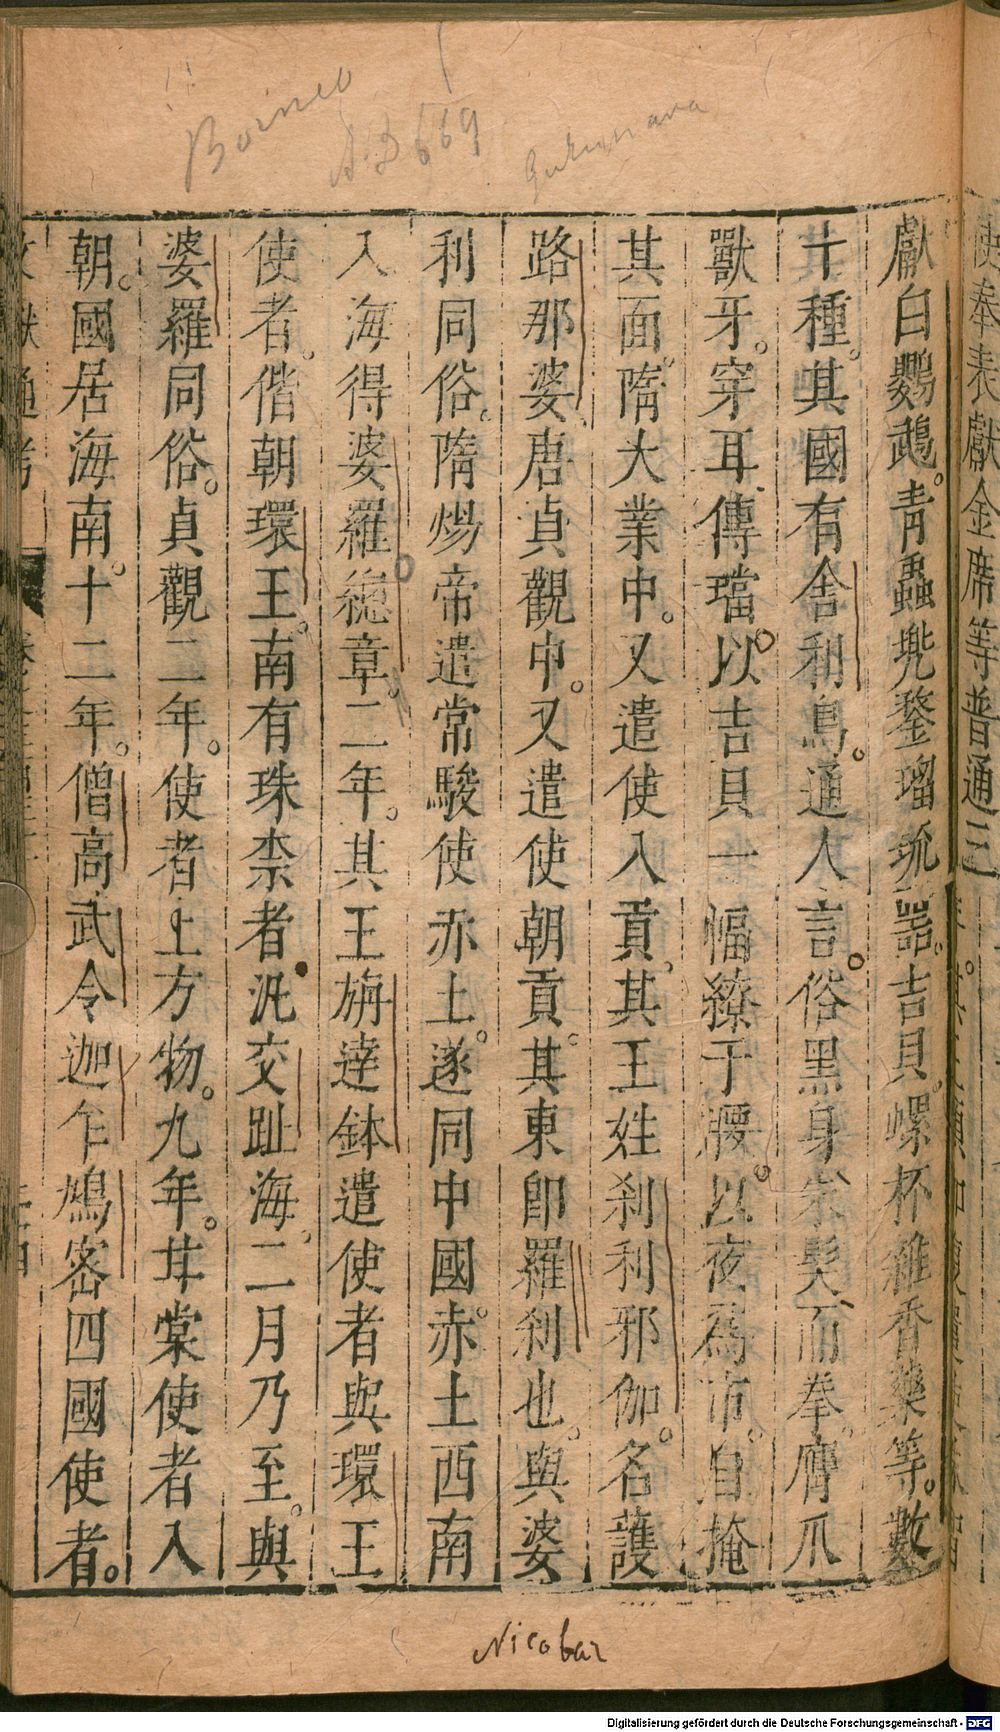 Borneo
B 669
獻白鸚鵡。青蟲兠鍪瑠琉噐。吉貝。螺杯雜香藥等。數
十種。其國有舍利鳥。通人言。俗黑身朱髮而拳。鷹爪
獸牙。穿耳傳璫。以吉貝一幅繚于腰。以夜爲市。自掩
其面。隋大業中。又遣使入貢。其王姓刹利邪伽。名護
路那婆。唐貞觀中。又遣使朝貢。其東卽羅刹也。與婆
利同俗。隋煬帝遣常駿使赤土。遂同中國。赤土西南
入海得婆羅總章。二年。其王旃達鉢遣使者與環王
使者。偕朝環王。南有珠柰者汎交趾海。二月乃至。與
婆羅同俗。貞觀二年。使者上方物。九年。甘棠使者入
朝。國居海南。十二年。僧高武令迦乍鳩密四國使者。
Nicobar
Digitalisierung gefördert durch die Deutsche Forschungsgemeinschaft - DFG